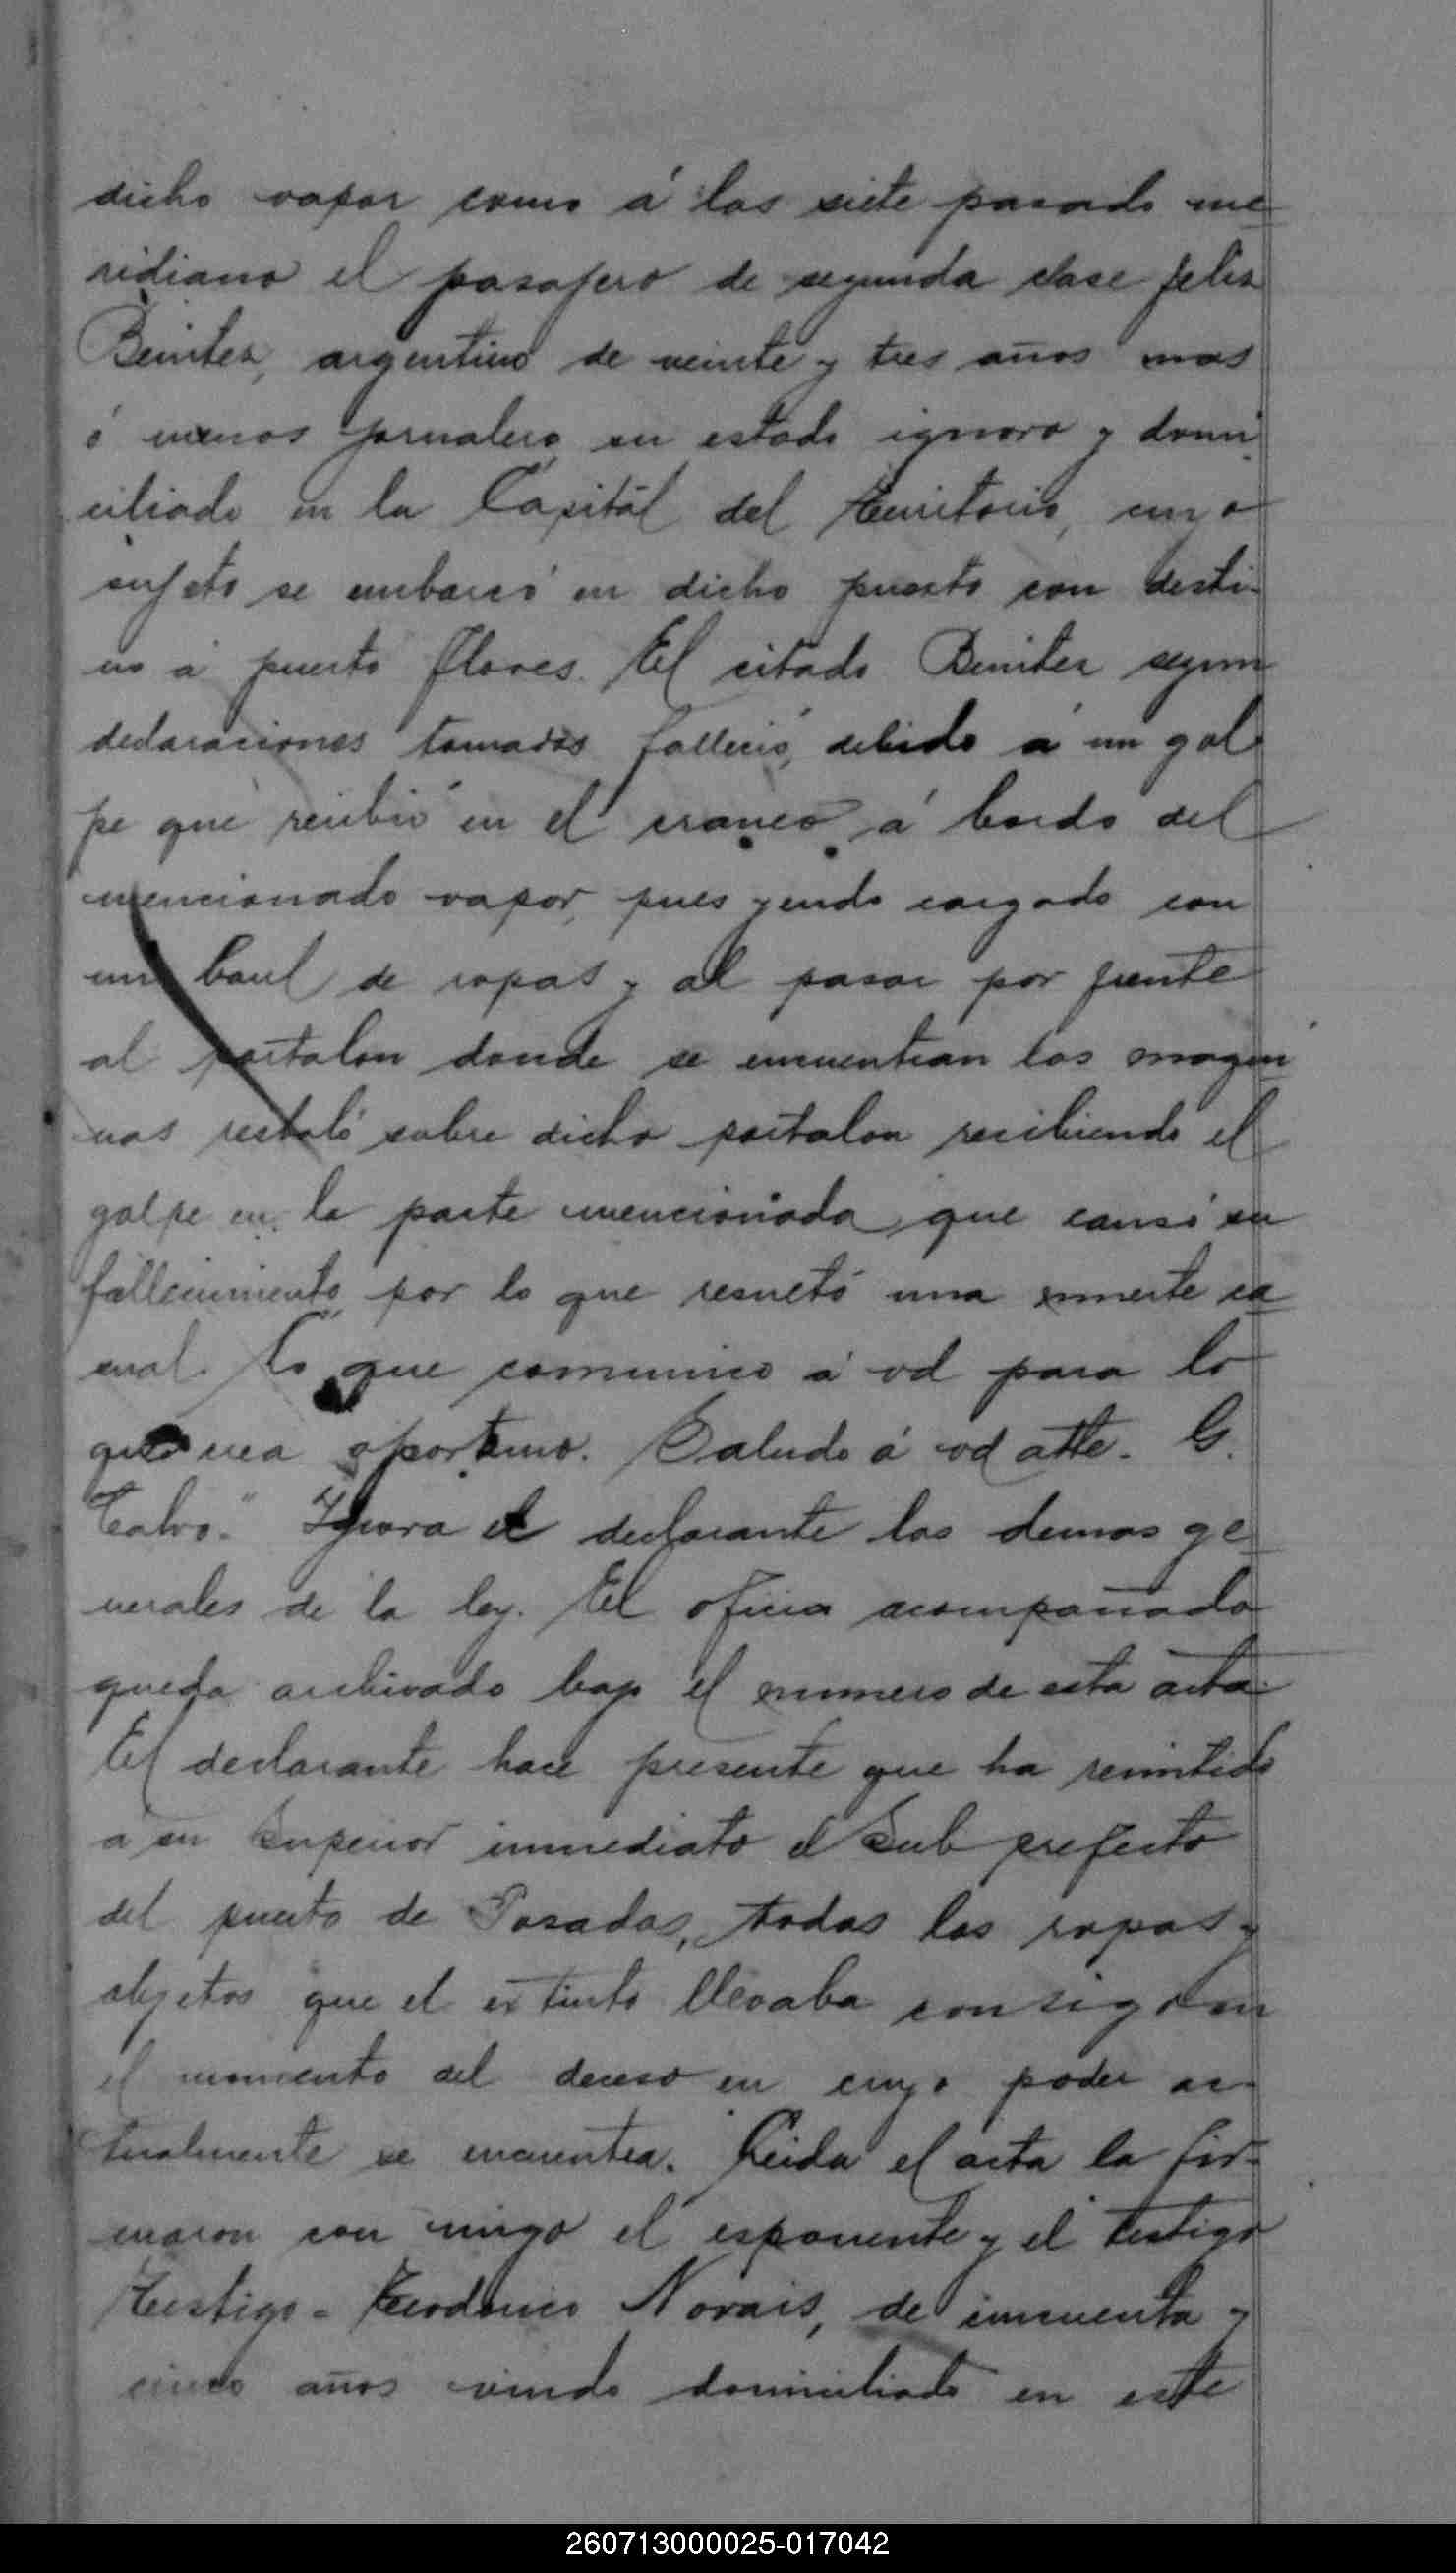 dicho vapor como á las siete pasado me
ridiano el pasajero de segunda clase felix
Benitez, argentino de veinte y tres años mas
ó menos jornalero su estado ignoro y domi
ciliado en la Capitál del territorio, cuyo
sujeto se embarcó en dicho puerto con desti-
no á puerto flores. El citado Benitez segun
declaraciones tomadas falleció, debido á un gol
pe que recibió en el craneo á bordo del
mencionado vapor, pues yendo cargado con
un baul de ropas y al pasar por frente
al portalon donde se encuentran las maqui
nas resbaló sobre dicho portalon recibiendo el
golpe en la parte mencionada que causó su
fallecimiento por lo que resueltó una muerte ca
sual. Lo que comunico á vd para lo
que crea oportuno. Saludo á vd atte. G.
Calvo." Ignora el declarante las demas ge
nerales de la ley. El oficio acompañado
queda archivado bajo el numero de esta acta
El declarante hace presente que ha remitido
a su Superior inmediato el Sub prefecto
del puerto de Posadas, todas las ropas y
objetos que el extinto llevaba consigo en
el momento del deceso en cuyo poder ac-
tualmente se encuentra. Leida el acta la fir-
maron con migo el esponente y el testigo
Testigo = Teodorico Novais, de cincuenta y
cinco años viudo domiciliado en este
260713000025-017042